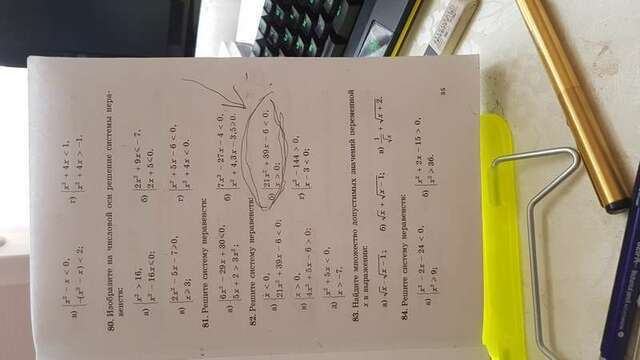 а) { x² − x < 0, −(x² − x) < 2; г) { x² + 4x < 1, x² + 4x > −1.
80. Изобразите на числовой оси решение системы нера-
венств:
а) { x² > 16, x² − 16x < 0; б) { 2x² + 9x < −7, 2x + 5 < 0,
в) { 2x² − 5x − 7 > 0, x ≥ 3; г) { x² + 5x − 6 < 0, x² + 4x < 0.
81. Решите систему неравенств:
а) { 6x² − 29x + 30 < 0, 5x + 2 > 3x²; б) { 7x² − 27x − 4 < 0, x² + 4,3x − 3,5 > 0.
82. Решите систему неравенств:
а) { x < 0, 21x² + 39x − 6 < 0; б) { 21x² + 39x − 6 < 0, x > 0;
в) { x > 0, 4x² + 5x − 6 > 0; г) { x² − 144 > 0, x − 3 < 0;
д) { x² + 5x < 0, x > −7.
83. Найдите множество допустимых значений переменной
x в выражении:
а) √x · √x − 1; б) √x + √x − 1; в) 1/√x + √x + 2.
84. Решите систему неравенств:
а) { x² − 2x − 24 < 0, x² > 9; б) { x² + 2x − 15 > 0, x² > 36.
35